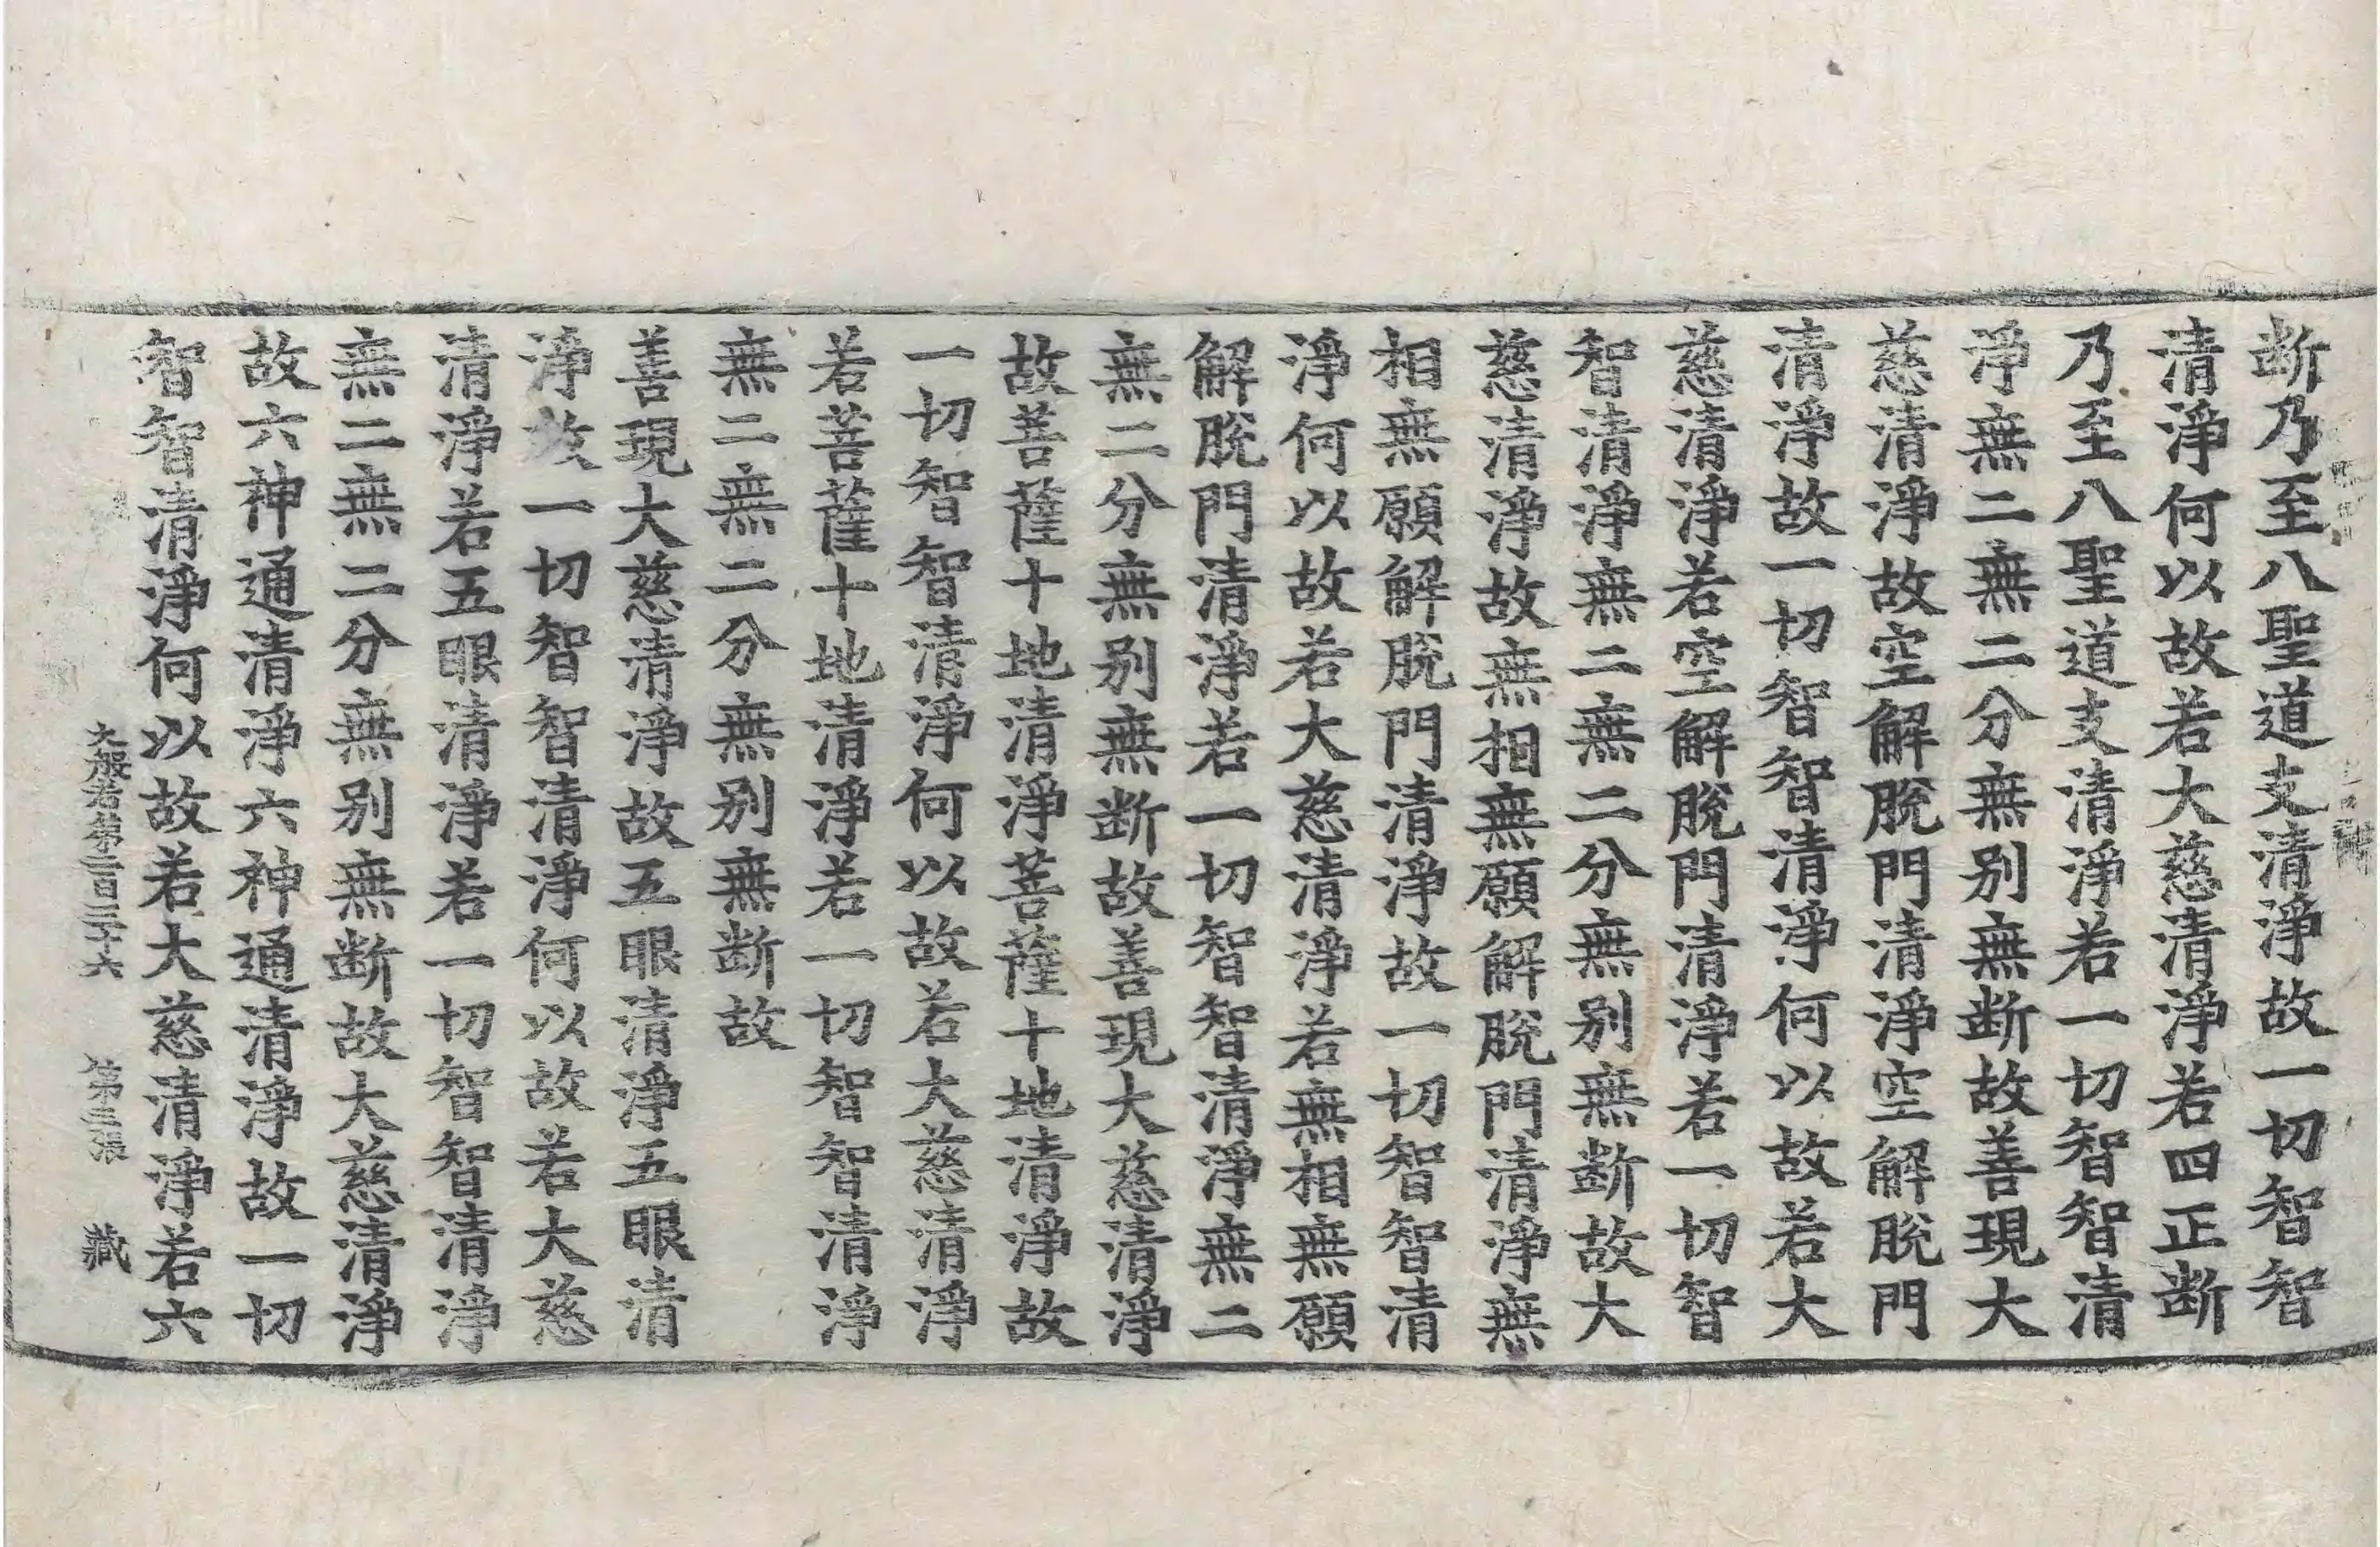 断乃至八聖道支清淨故一切智智
清淨何以故若大慈清淨若四正断
乃至八聖道支清淨若一切智智清
淨無二無二分無别無断故善現大
慈清淨故空解脫門清淨空解脫門
清淨故一切智智清淨何以故若大
慈清淨若空解脫門清淨若一切智
智清淨無二無二分無别無断故大
慈清淨故無相無願解脫門清淨無
相無願解脫門清淨故一切智智清
淨何以故若大慈清淨若無相無願
解脫門清淨若一切智智清淨無二
無二分無别無断故善現大慈清淨
故菩薩十地清淨菩薩十地清淨故
一切智智清淨何以故若大慈清淨
若菩薩十地清淨若一切智智清淨
無二無二分無别無断故
善現大慈清淨故五眼清淨五眼清
淨故一切智智清淨何以故若大慈
清淨若五眼清淨若一切智智清淨
無二無二分無别無断故大慈清淨
故六神通清淨六神通清淨故一切
智智清淨何以故若大慈清淨若六
大般若第二百三十六 第三張 藏